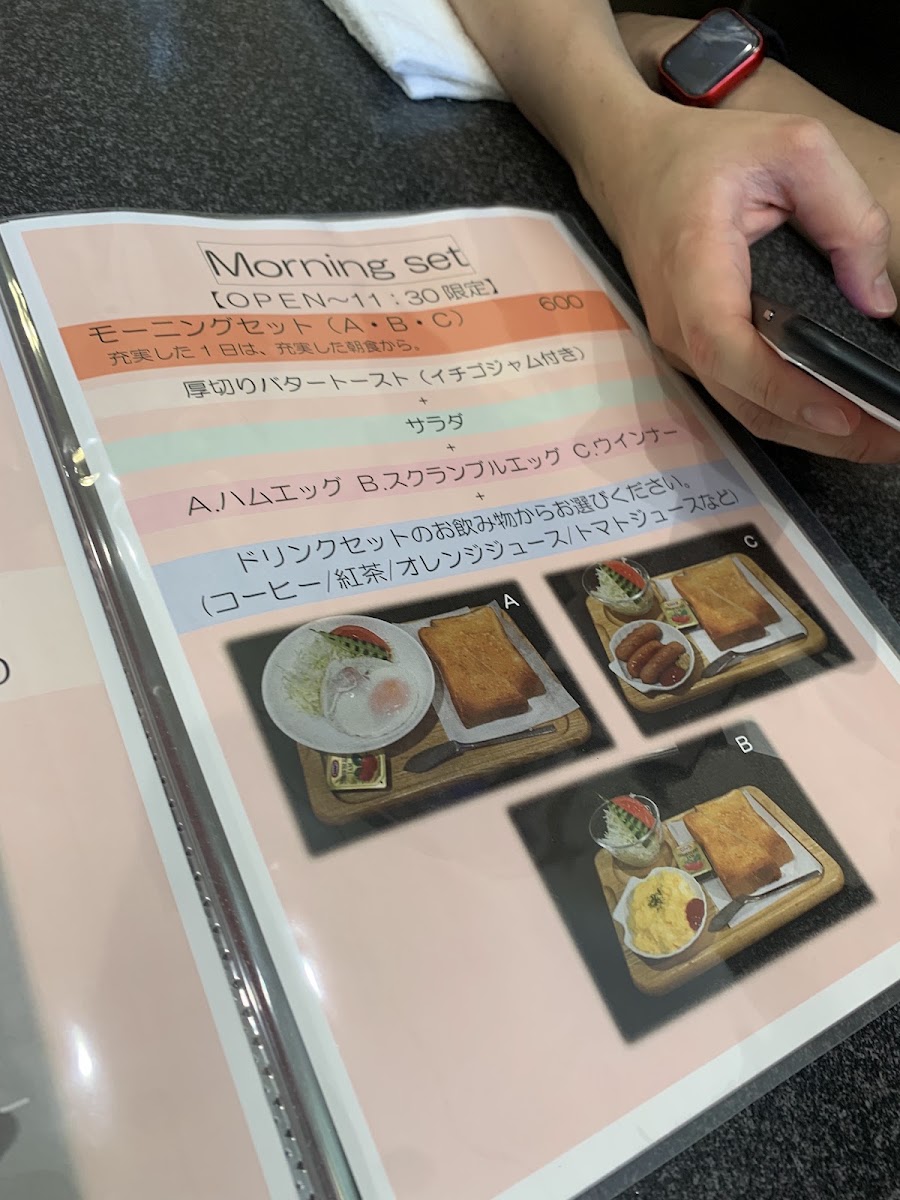 Morning set
【OPEN~11:30限定】
モーニングセット（A・B・C） 600
充実した1日は、充実した朝食から。
厚切りバタートースト（イチゴジャム付き）
+
サラダ
+
A.ハムエッグ B.スクランブルエッグ C.ウインナー
+
ドリンクセットのお飲み物からお選びください。
(コーヒー/紅茶/オレンジジュース/トマトジュースなど)
A
C
B